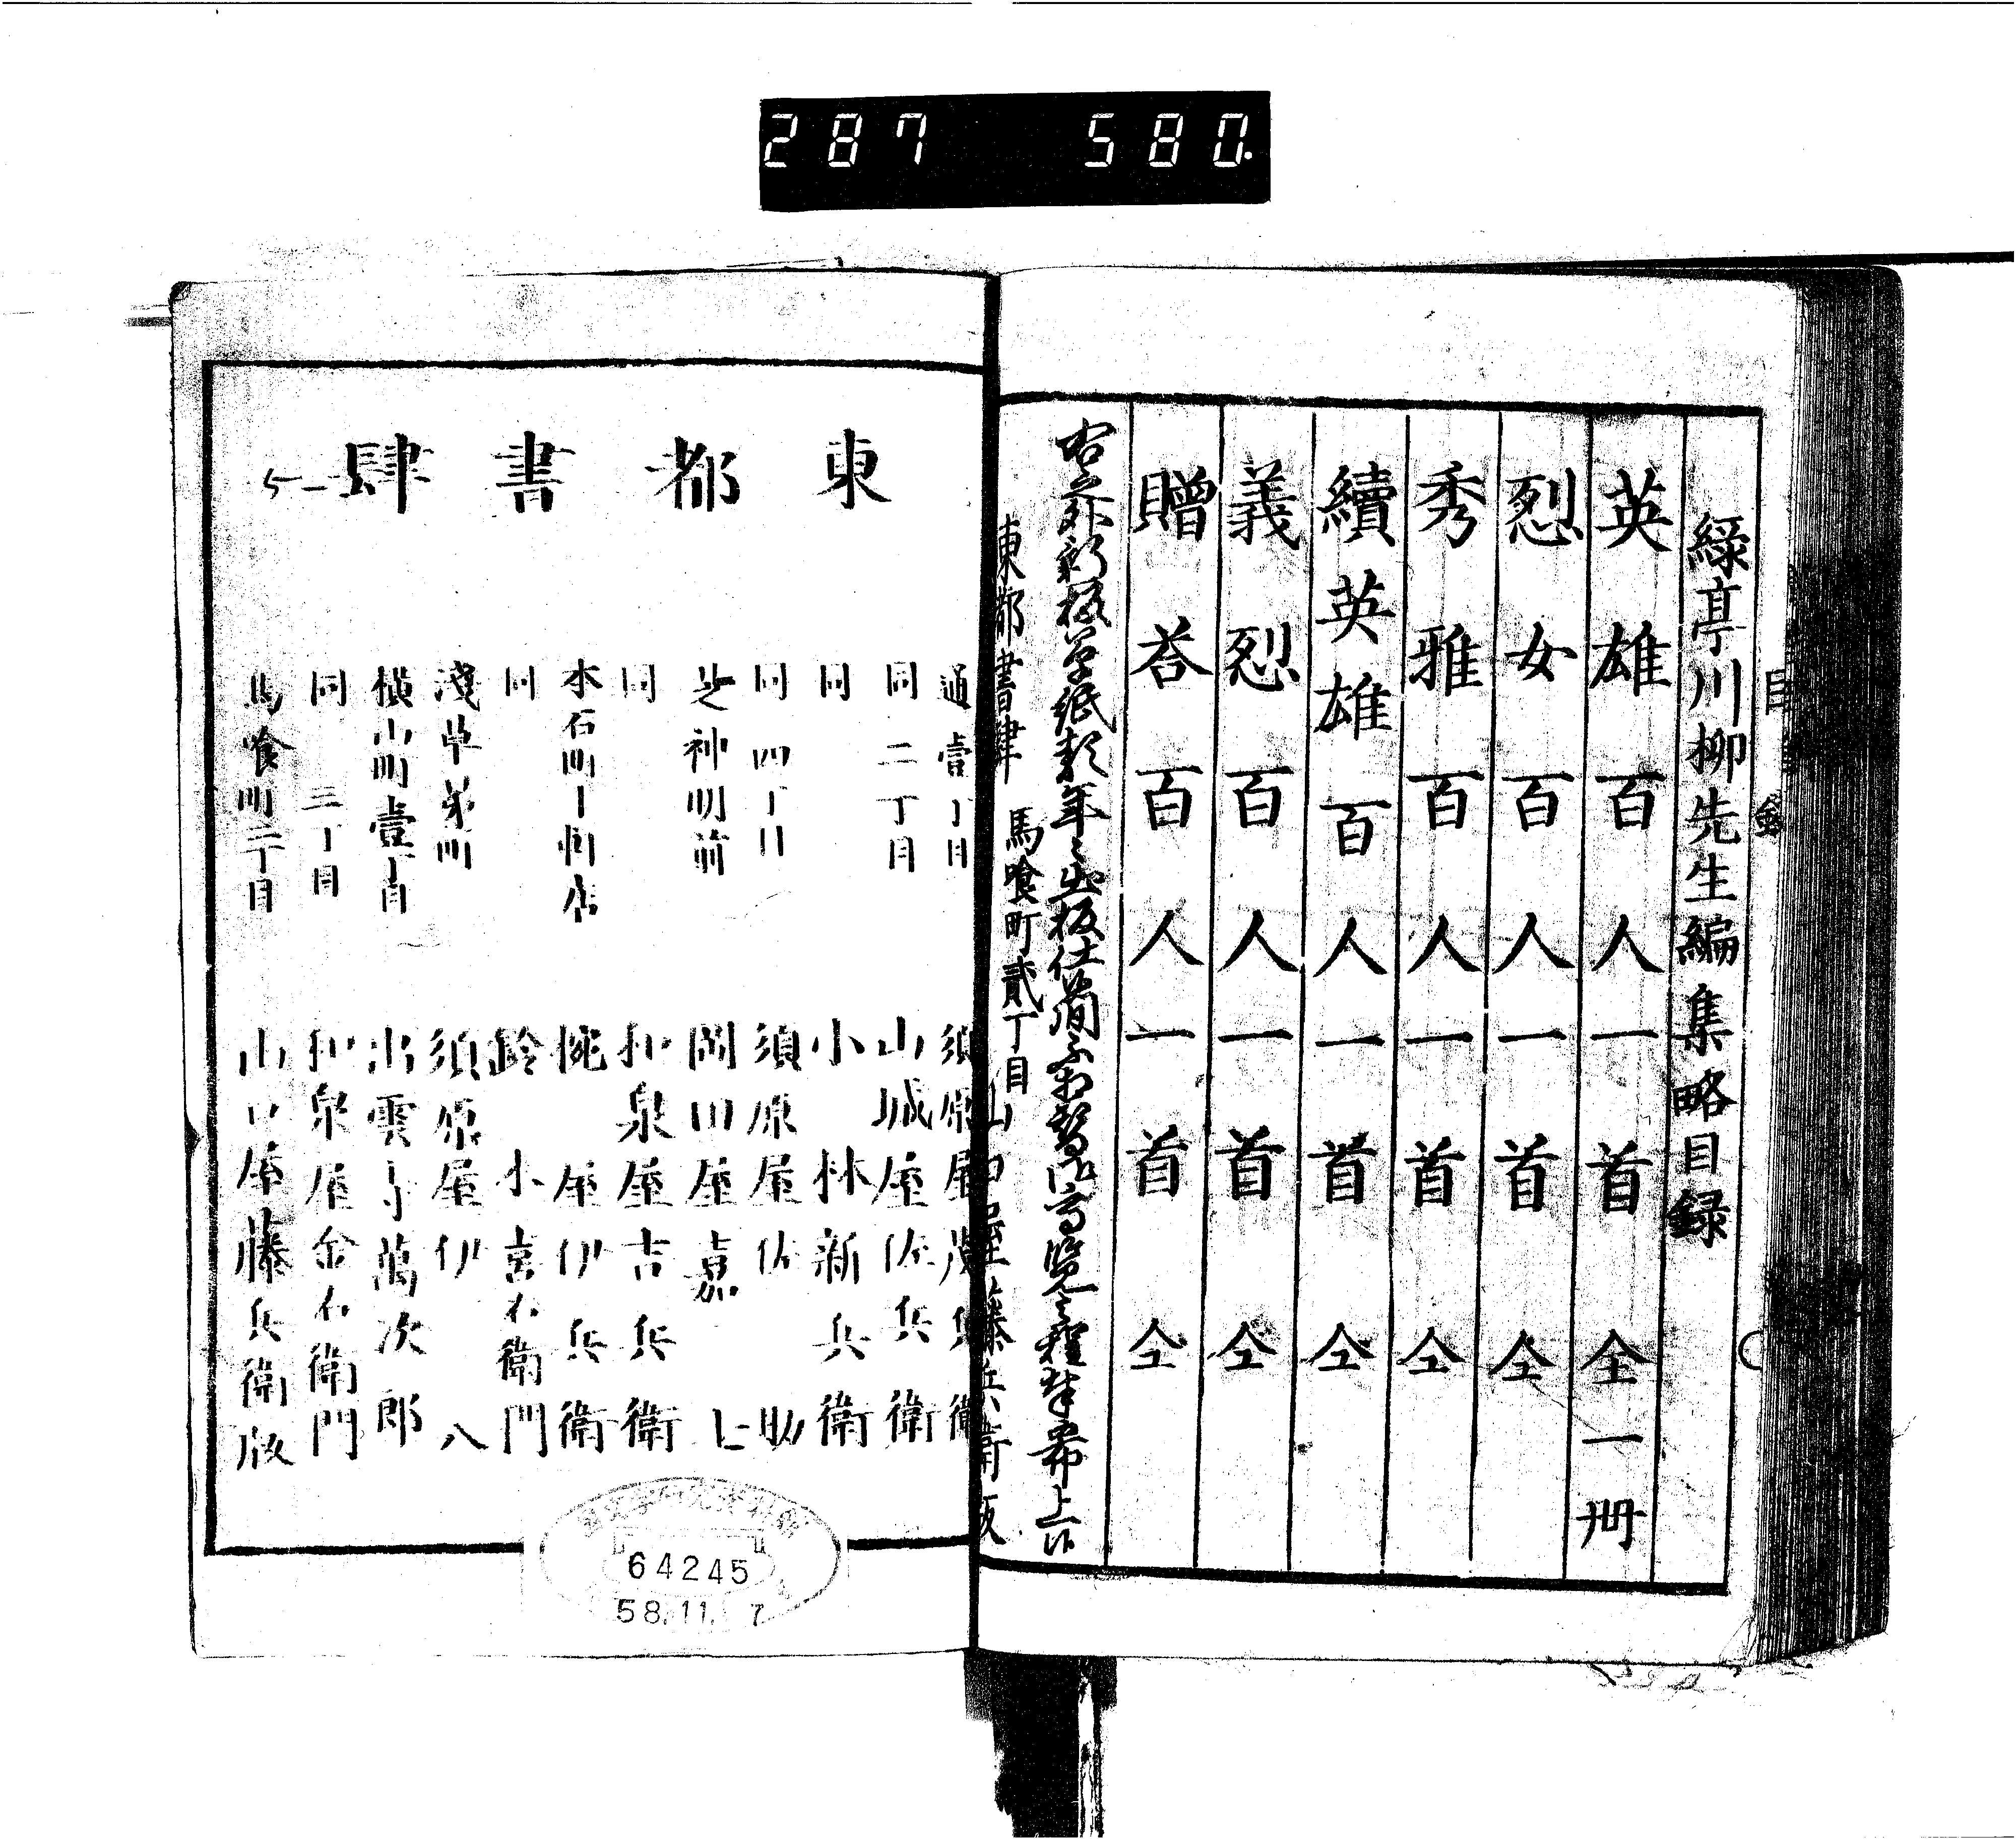 287 580.
緑亭川柳先生編集略目録
英雄百人一首 全一冊
烈女百人一首 仝
秀雅百人一首 仝
續英雄百人一首 仝
義烈百人一首 仝
贈答百人一首 仝
右之外新板草紙類年々出板仕
東都書肆 馬喰町貳丁目 山口屋藤兵衛板
目録
東都書肆
通壹丁目 須原屋茂兵衛
同二丁目 山城屋佐兵衛
同 小林新兵衛
同四丁目 須原屋佐助
芝神明前 岡田屋嘉七
同 和泉屋吉兵衛
本石町十軒店 屋伊兵衛
同 鈴木 右衛門
淺草茅町 須原屋伊八
横山町壹丁目 出雲寺萬次郎
同三丁目 和泉屋金右衛門
馬喰町二丁目 山口屋藤兵衛版
64245
58.11. 7